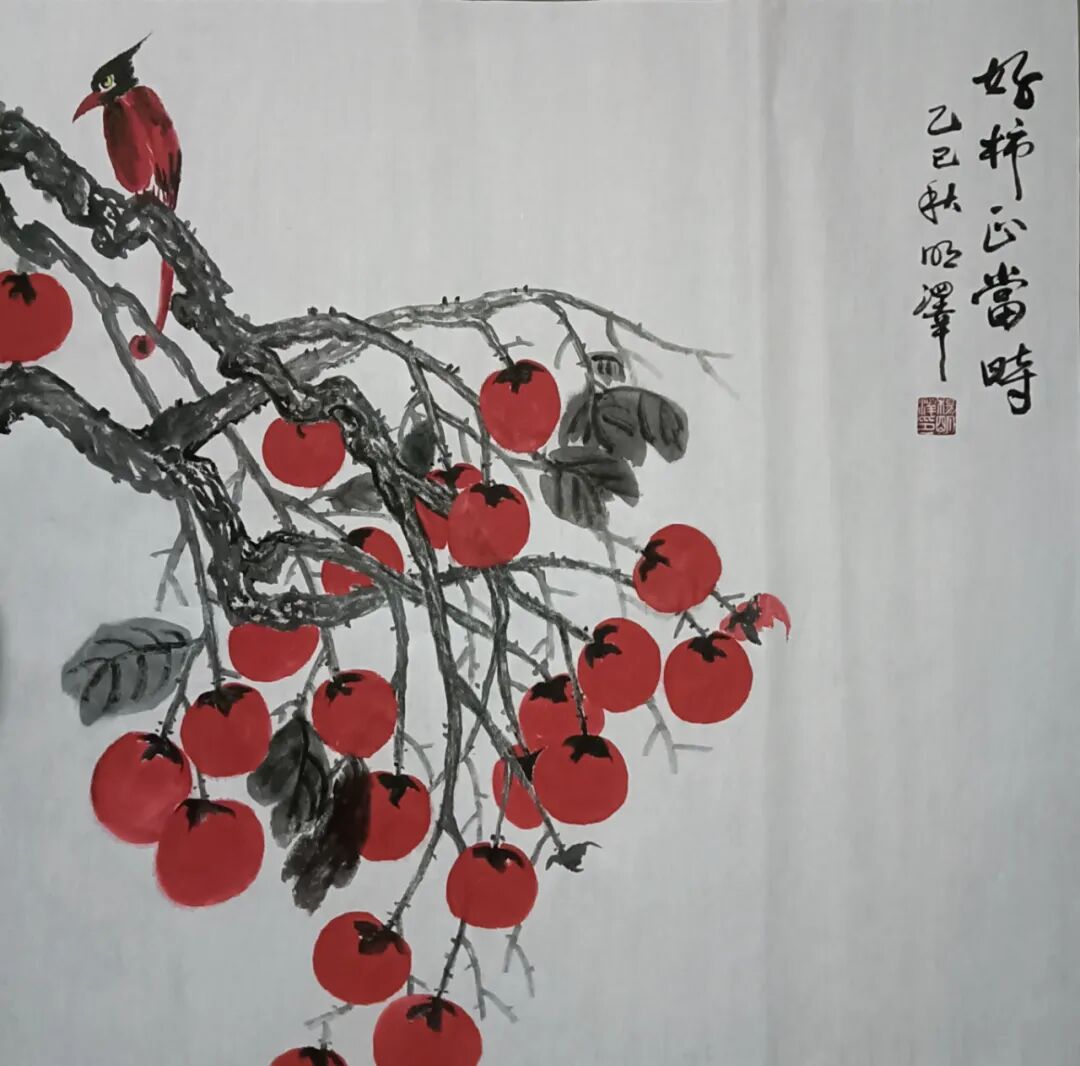 好柿正當時
乙巳秋明澤